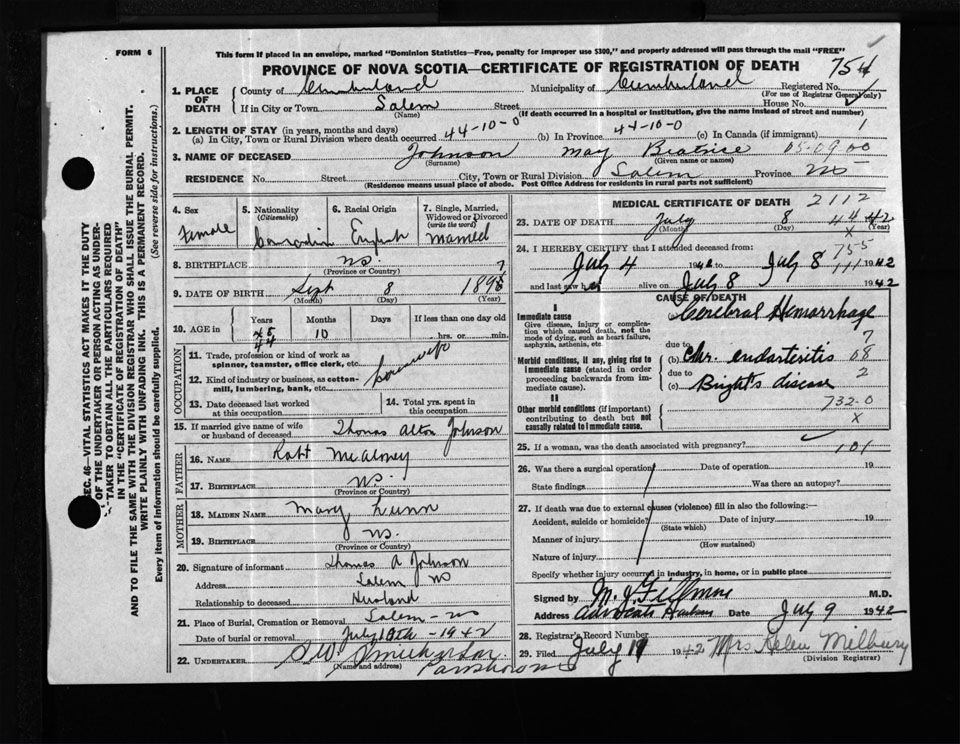 FORM 6
This form if placed in an envelope, marked "Dominion Statistics—Free, penalty for improper use $300," and properly addressed will pass through the mail "FREE"
PROVINCE OF NOVA SCOTIA—CERTIFICATE OF REGISTRATION OF DEATH 754
1. PLACE OF DEATH
County of Cumberland Municipality of Cumberland Registered No.
(For use of Registrar General only)
If in City or Town Salem Street House No.
(Name) (If death occurred in a hospital or institution, give the name instead of street and number)
2. LENGTH OF STAY (in years, months and days)
(a) In City, Town or Rural Division where death occurred 44-10-0 (b) In Province 44-10-0 (c) In Canada (if immigrant)
3. NAME OF DECEASED Johnson May Beatrice 05-09 00
(Surname) (Given name or names)
RESIDENCE No. Street City, Town or Rural Division Salem Province NS
(Residence means usual place of abode. Post Office Address for residents in rural parts not sufficient)
SEC. 46—VITAL STATISTICS ACT MAKES IT THE DUTY
OF THE UNDERTAKER OR PERSON ACTING AS UNDER-
TAKER TO OBTAIN ALL THE PARTICULARS REQUIRED
IN THE "CERTIFICATE OF REGISTRATION OF DEATH"
AND TO FILE THE SAME WITH THE DIVISION REGISTRAR WHO SHALL ISSUE THE BURIAL PERMIT.
WRITE PLAINLY WITH UNFADING INK. THIS IS A PERMANENT RECORD.
Every item of information should be carefully supplied. (See reverse side for instructions.)
4. Sex
Female
5. Nationality
(Citizenship)
Canadian
6. Racial Origin
English
7. Single, Married,
Widowed or Divorced
(write the word)
Married
8. BIRTHPLACE NS.
(Province or Country)
9. DATE OF BIRTH Sept 8 1897
(Month) (Day) (Year)
10. AGE in
Years Months Days If less than one day old
44 10 hrs. or min.
OCCUPATION
11. Trade, profession or kind of work as
spinner, teamster, office clerk, etc. housewife
12. Kind of industry or business, as cotton-
mill, lumbering, bank, etc.
13. Date deceased last worked
at this occupation
14. Total yrs. spent in
this occupation
15. If married give name of wife
or husband of deceased Thomas Alton Johnson
FATHER
16. NAME Robt McAloney
17. BIRTHPLACE NS.
(Province or Country)
MOTHER
18. MAIDEN NAME Mary Lunn
19. BIRTHPLACE NS.
(Province or Country)
20. Signature of informant Thomas A Johnson
Address Salem NS
Relationship to deceased Husband
21. Place of Burial, Cremation or Removal Salem NS
Date of burial or removal July 10th - 1942
22. UNDERTAKER
(Name and address)
MEDICAL CERTIFICATE OF DEATH 2112
23. DATE OF DEATH July 8 44 42
(Month) (Day) (Year)
x
24. I HEREBY CERTIFY that I attended deceased from: 755
July 4 1942 to July 8 1942
and last saw her alive on July 8 1942
CAUSE OF DEATH
I
Immediate cause
Give disease, injury or complica-
tion which caused death, not the
mode of dying, such as heart failure,
asphyxia, asthenia, etc.
(a) Cerebral Hemorrhage
due to 7
Morbid conditions, if any, giving rise to
immediate cause (stated in order
proceeding backwards from im-
mediate cause).
(b) Chr. endarteritis 08
due to 2
(c) Bright's disease
732-0
II
Other morbid conditions (if important)
contributing to death but not
causally related to immediate cause.
x
25. If a woman, was the death associated with pregnancy? 101
26. Was there a surgical operation? Date of operation 19
State findings Was there an autopsy?
27. If death was due to external causes (violence) fill in also the following:—
Accident, suicide or homicide? Date of injury 19
(State which)
Manner of injury
(How sustained)
Nature of injury
Specify whether injury occurred in industry, in home, or in public place
Signed by M. J. Fillmore M.D.
Address Advocate Harbour Date July 9 1942
28. Registrar's Record Number
29. Filed July 1942 Mrs Helen Milbury
(Division Registrar)